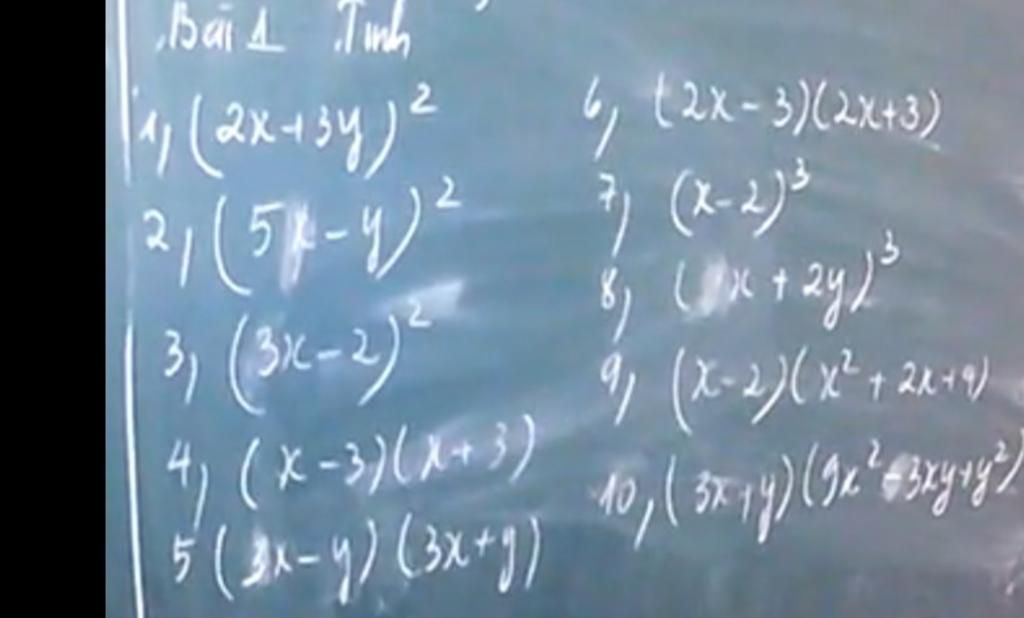 Bài 1 Tính
1, (2x+3y)²
2, (5x-y)²
3, (3x-2)²
4, (x-3)(x+3)
5 (3x-y)(3x+y)
6, (2x-3)(2x+3)
7, (x-2)³
8, (x+2y)³
9, (x-2)(x²+2x+4)
10, (3x+y)(9x²-3xy+y²)